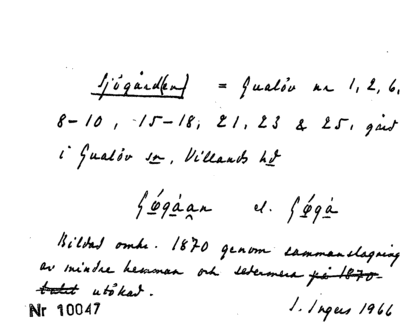 Sjögård(en) = Gualöv nr 1, 2, 6,
8-10, 15-18, 21, 23 & 25, gård
i Gualöv sn, Villands hd
el.
Bildad omkr. 1870 genom sammanslagning
av mindre hemman och sedermera på 1870-
talet utökad.
Nr 10047 I. Ingers 1966